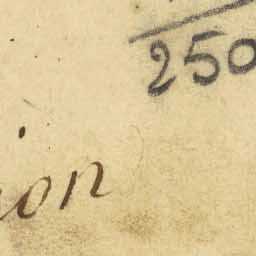 250
ion